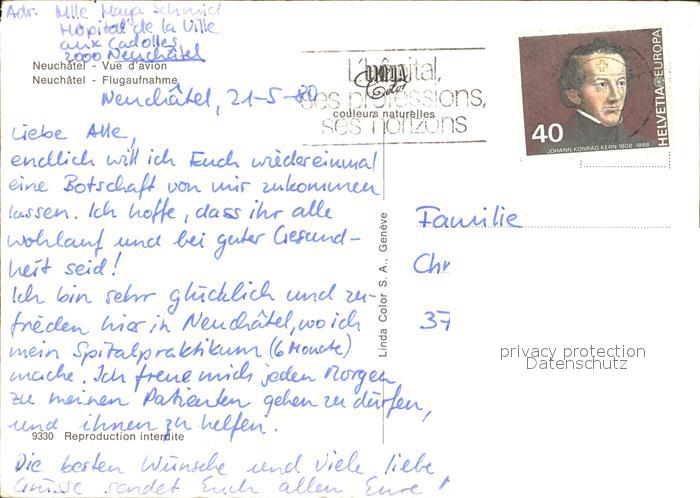 Adr. Mlle Maya Schmid
Hôpital de la Ville
aux Cadolles
2000 Neuchâtel
Neuchâtel - Vue d'avion
Neuchâtel - Flugaufnahme
Neuchâtel, 21-5-80
L'hôpital,
ses professions,
ses horizons
Color
couleurs naturelles
40
HELVETIA EUROPA
JOHANN KONRAD KERN 1808 1888
Liebe Alle,
endlich will ich Euch wiedereinmal
eine Botschaft von mir zukommen
lassen. Ich hoffe, dass ihr alle
wohlauf und bei guter Gesund-
heit seid!
Ich bin sehr glücklich und zu-
frieden hier in Neuchâtel, wo ich
mein Spitalpraktikum (6 Monate)
mache. Ich freue mich jeden Morgen
zu meinen Patienten gehen zu dürfen,
und ihnen zu helfen.
9330 Reproduction interdite
Die besten Wünsche und viele liebe
Grüsse sendet Euch allen Eure
Linda Color S. A., Genève
Familie
Chr
37
privacy protection
Datenschutz